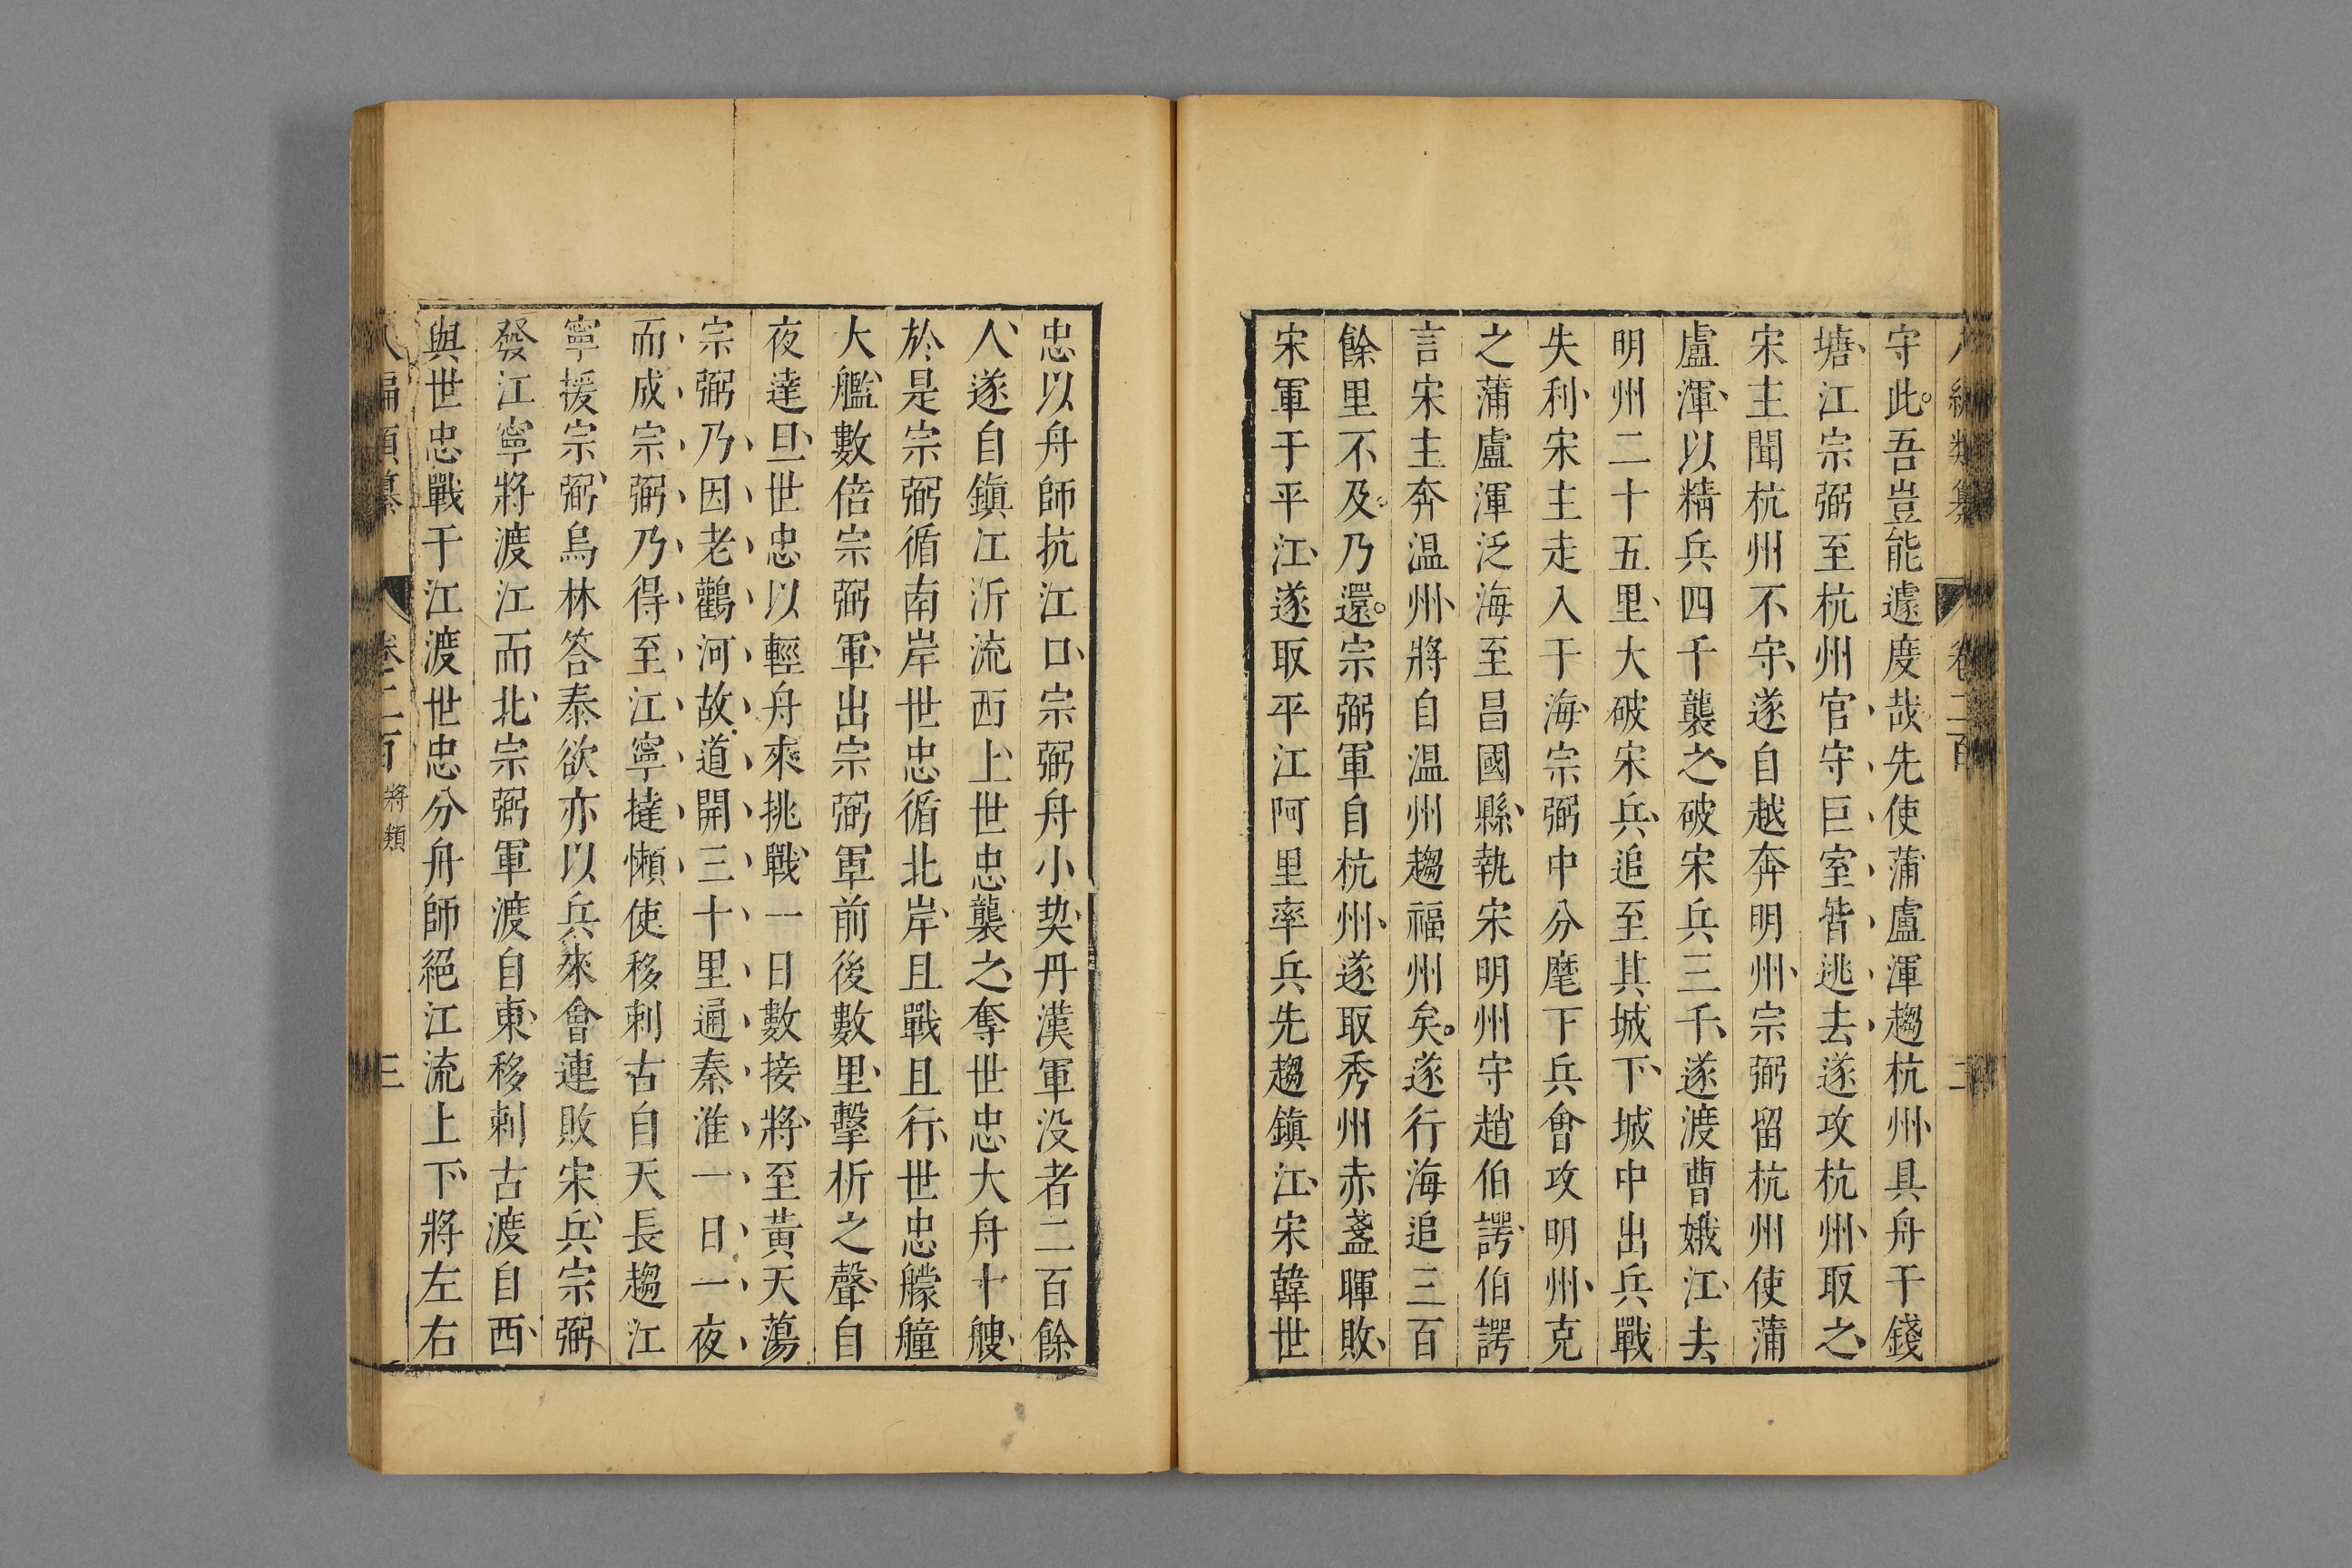 守此。吾豈能遽度哉先使蒲盧渾趨杭州、具舟于錢
塘、江宗弼至杭州官、守、巨、室、皆、逃、去、遂攻杭州、取之、
宋主聞杭州不守、遂自越奔明州、宗弼留杭州使蒲
盧渾、以精兵四千襲之、破宋兵三千、遂渡曹娥江、去
明州二十五里、大破宋兵、追至其城下、城中出兵戰
失利、宋主走入于海、宗弼中分麾下兵會攻明州、克
之蒲盧渾泛海至昌國縣、執宋明州守趙伯諤、伯諤
言宋主奔温州、將自温州趨福州矣。遂行海追三百
餘里不及。乃還。宗弼軍自杭州、遂取秀州赤盞暉敗、
宋軍于平江、遂取平江阿里率兵先趨鎮江、宋韓世
八編類纂 卷二百 二
忠以舟師抗江口、宗弼舟小、契丹漢軍没者二百餘
人、遂自鎮江泝流西上、世忠襲之、奪世忠大舟十艘、
於是宗弼循南岸世忠循北岸、且戰且行、世忠艨艟
大艦、數倍宗弼軍、出宗弼軍前後數里、擊柝之聲、自
夜達旦、世忠以輕舟來挑戰、一日數接、將至黃天蕩
宗弼、乃、因、老、鸛、河、故、道、開、三、十、里、通、秦、淮、一、日、一、夜、
而、成、宗、弼、乃、得、至、江、寧、撻、懶、使移剌古自天長趨江
寧援宗弼、烏林答泰欲亦以兵來會連敗宋兵、宗弼
發江寧將渡江而北、宗弼軍渡自東、移剌古渡自西、
與世忠戰于江渡世忠分舟師絕江流上下、將左右
八編類纂 卷二百 將類 三